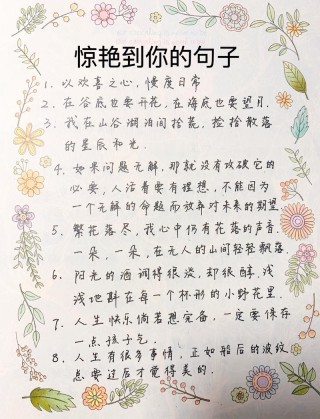 惊艳到你的句子
1. 以欢喜之心，慢度日常
2. 在谷底也要开花，在海底也要望月.
3. 我在山谷湖泊间捡花，捡捡散落
的星辰和光.
4. 如果问题无解，那就没有攻破它的
必要，人活着要有理想，不能因为
一个无解的命题而放弃对未来的期望
5. 繁花落尽，我心中仍有花落的声音.
一朵，一朵，在无人的山间轻轻飘落.
6. 阳光的酒调得很淡，却很醇，浅
浅地斟在每一个杯形的小野花里.
7. 人生快乐倘若想完备，一定要保存
一点孩子气.
8. 人生有很多事情，正如船后的波纹
总要过后才觉得美的.